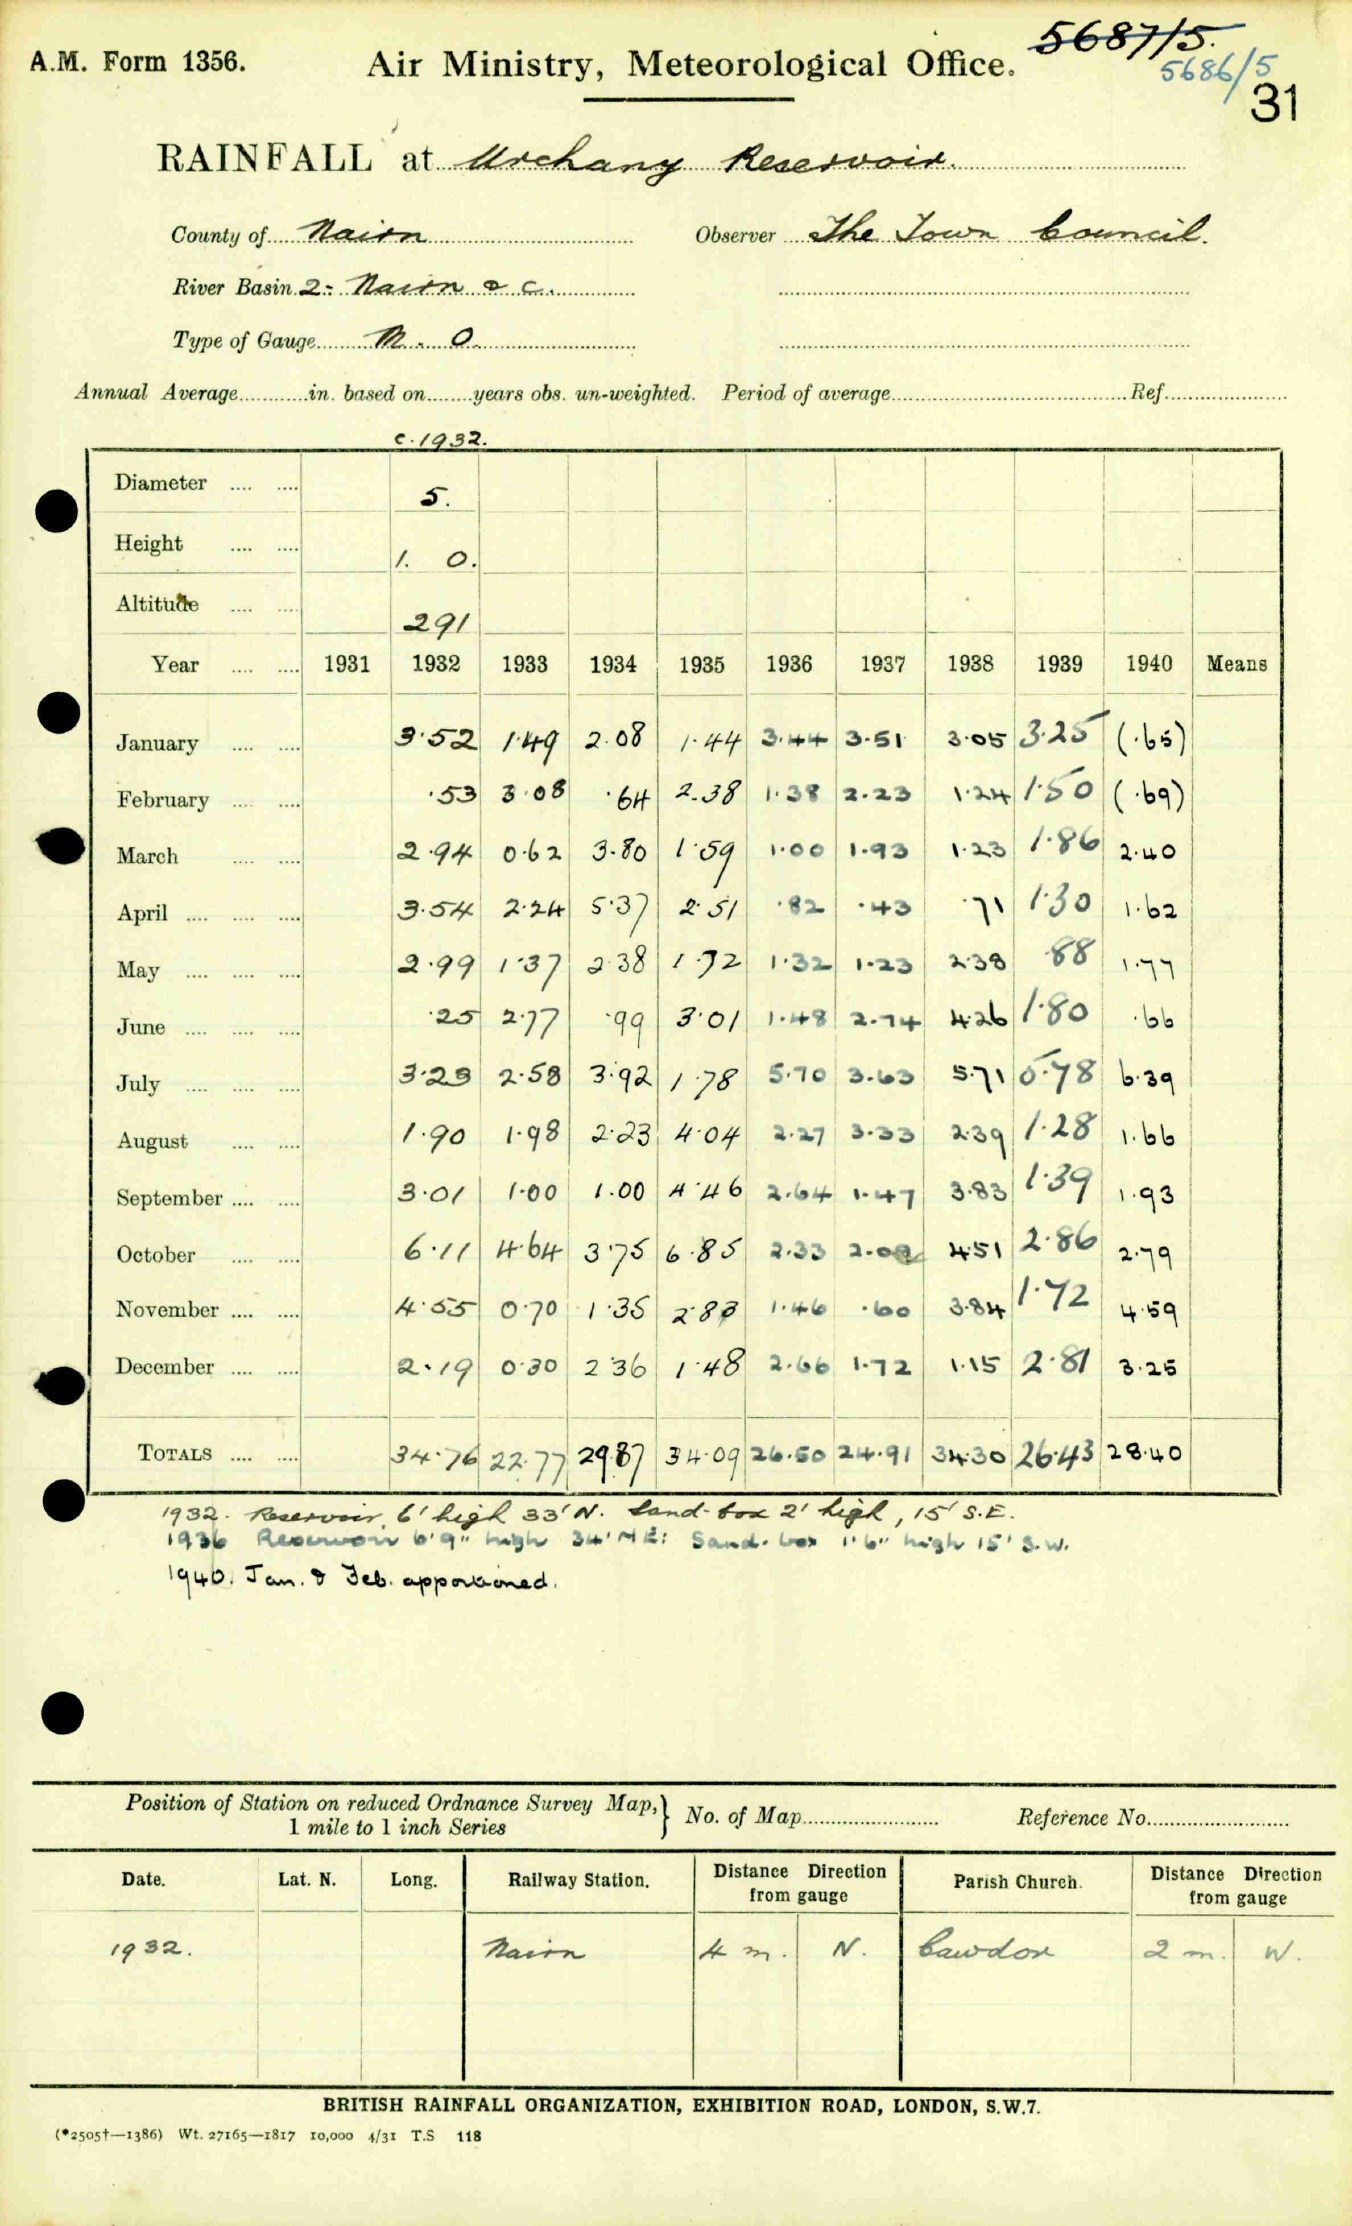 A.M. Form 1356.
Air Ministry, Meteorological Office.
5687/5.
5686/5
31
RAINFALL at Urchany Reservoir.
County of Nairn Observer The Town Council.
River Basin 2:- Nairn & c.
Type of Gauge M. O.
Annual Average in. based on years obs. un-weighted. Period of average Ref.
c. 1932.
Diameter 5.
Height 1. 0.
Altitude 291
Year 1931 1932 1933 1934 1935 1936 1937 1938 1939 1940 Means
January 3·52 1·49 2·08 1·44 3·44 3·51 3·05 3·25 (·65)
February ·53 3·08 ·64 2·38 1·38 2·23 1·24 1·50 (·69)
March 2·94 0·62 3·80 1·59 1·00 1·93 1·23 1·86 2·40
April 3·54 2·24 5·37 2·51 ·82 ·43 ·71 1·30 1·62
May 2·99 1·37 2·38 1·72 1·32 1·23 2·38 ·88 1·77
June ·25 2·77 ·99 3·01 1·48 2·74 4·26 1·80 ·66
July 3·23 2·58 3·92 1·78 5·70 3·63 5·71 5·78 6·39
August 1·90 1·98 2·23 4·04 2·27 3·33 2·39 1·28 1·66
September 3·01 1·00 1·00 4·46 2·64 1·47 3·83 1·39 1·93
October 6·11 4·64 3·75 6·85 2·33 2·09 4·51 2·86 2·79
November 4·55 0·70 1·35 2·83 1·46 ·60 3·84 1·72 4·59
December 2·19 0·30 2·36 1·48 2·66 1·72 1·15 2·81 3·25
TOTALS 34·76 22·77 29·87 34·09 26·50 24·91 34·30 26·43 28·40
1932. Reservoir 6' high 33' N. Sand-box 2' high, 15' S.E.
1936 Reservoir 6' 9" high 34' N E: Sand-box 1' 6" high 15' S.W.
1940. Jan. & Feb. apportioned.
Position of Station on reduced Ordnance Survey Map, 1 mile to 1 inch Series } No. of Map Reference No.
Date. Lat. N. Long. Railway Station. Distance Direction from gauge Parish Church. Distance Direction from gauge
1932. Nairn 4 m. N. Cawdor 2 m. W.
BRITISH RAINFALL ORGANIZATION, EXHIBITION ROAD, LONDON, S.W.7.
(*2505†—1386) Wt. 27165—1817 10,000 4/31 T.S 118